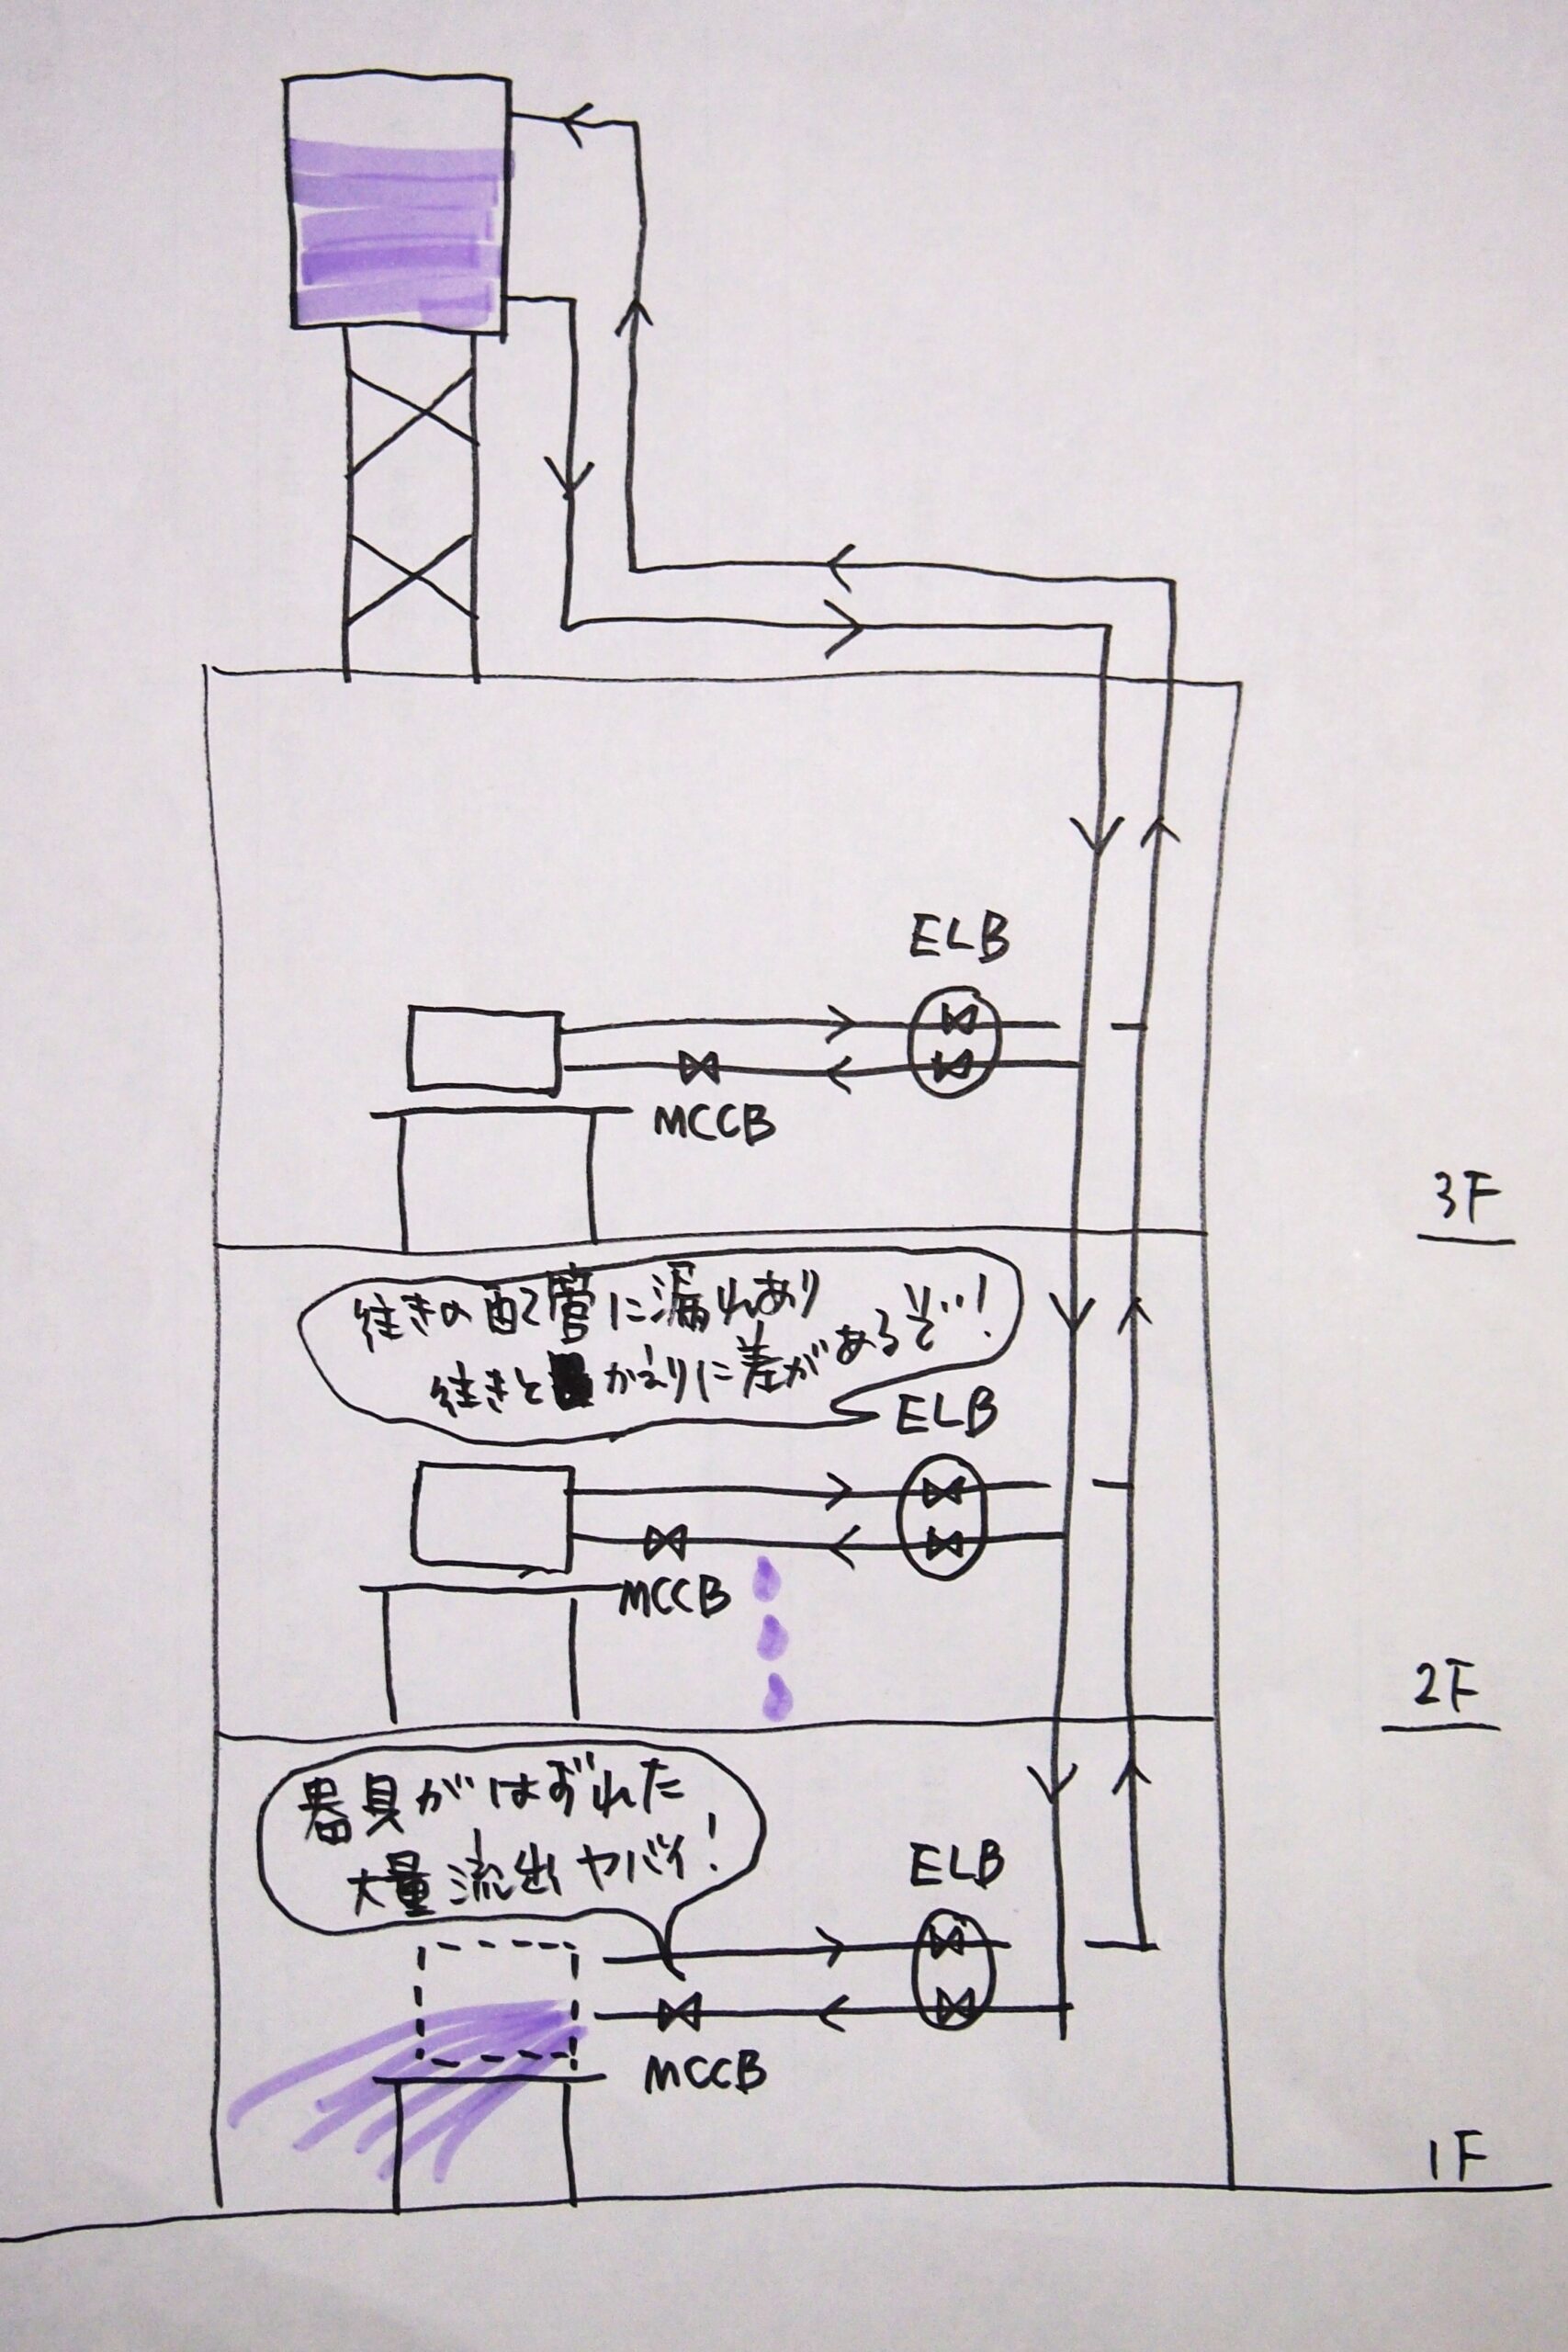 ELB
MCCB
3F
往きの配管に漏れあり
往きとかえりに差があるぞ!
ELB
MCCB
2F
器具がはずれた
大量流出ヤバイ!
ELB
MCCB
1F